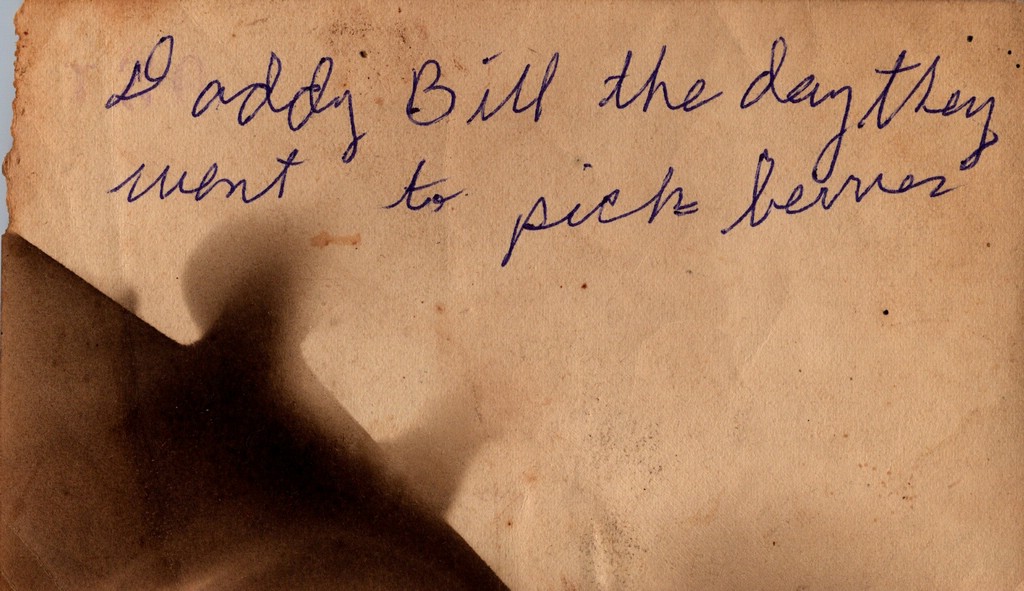 Daddy Bill the day they
went to pick berries